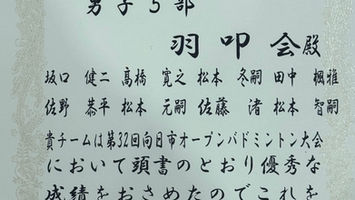 男子5部
羽叩会殿
坂口 健二 高橋 寛之 松本 冬嗣 田中 楓雅
佐野 恭平 松本 元嗣 佐藤 渚 松本 智嗣
貴チームは第32回向日市オープンバドミントン大会
において頭書のとおり優秀な
成績をおさめたのでこれを